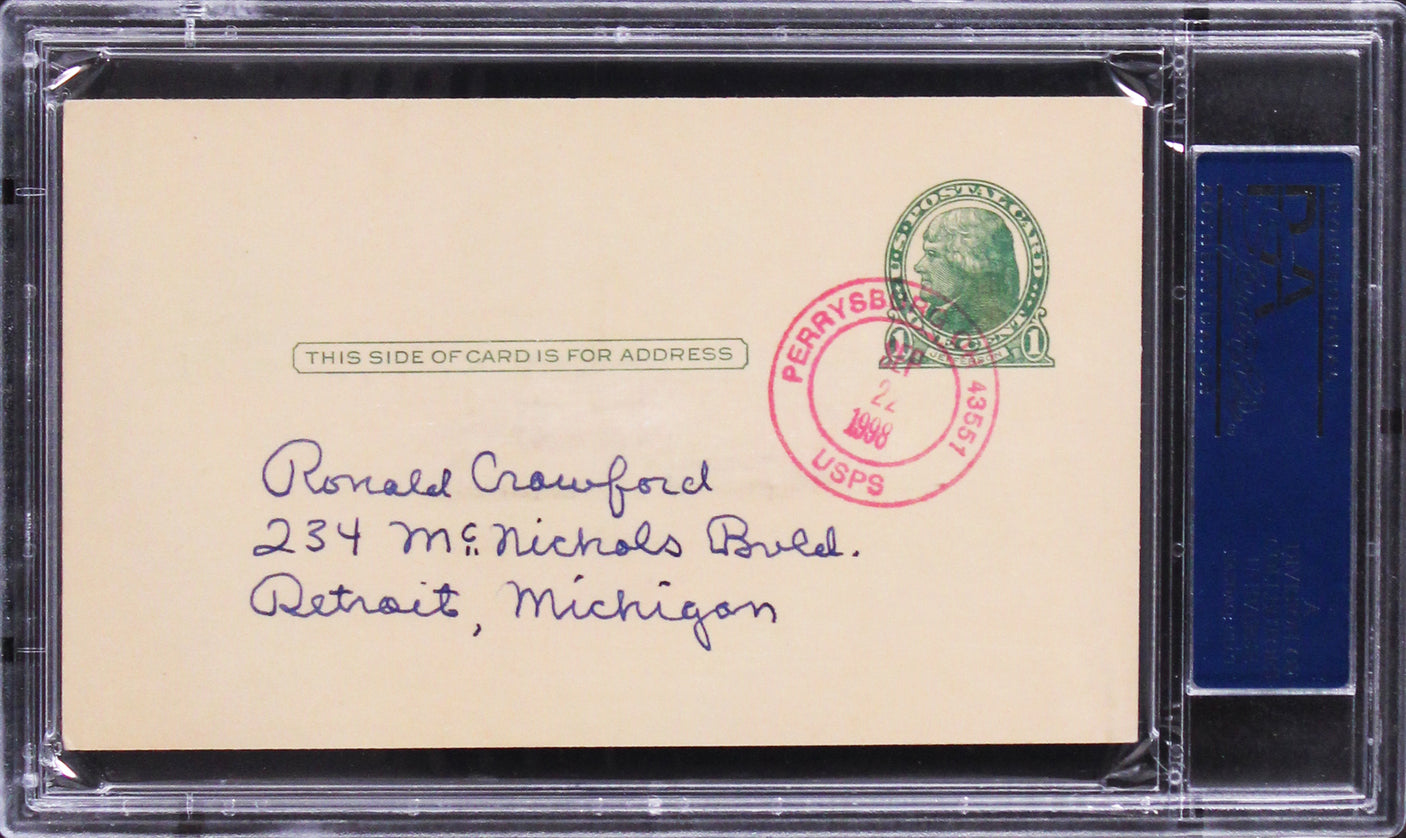 U.S. POSTAL CARD
JEFFERSON
1
THIS SIDE OF CARD IS FOR ADDRESS
PERRYSBURG 43551
SEP
22
1998
USPS
Ronald Crawford
234 Mc Nichols Bvld.
Detroit, Michigan